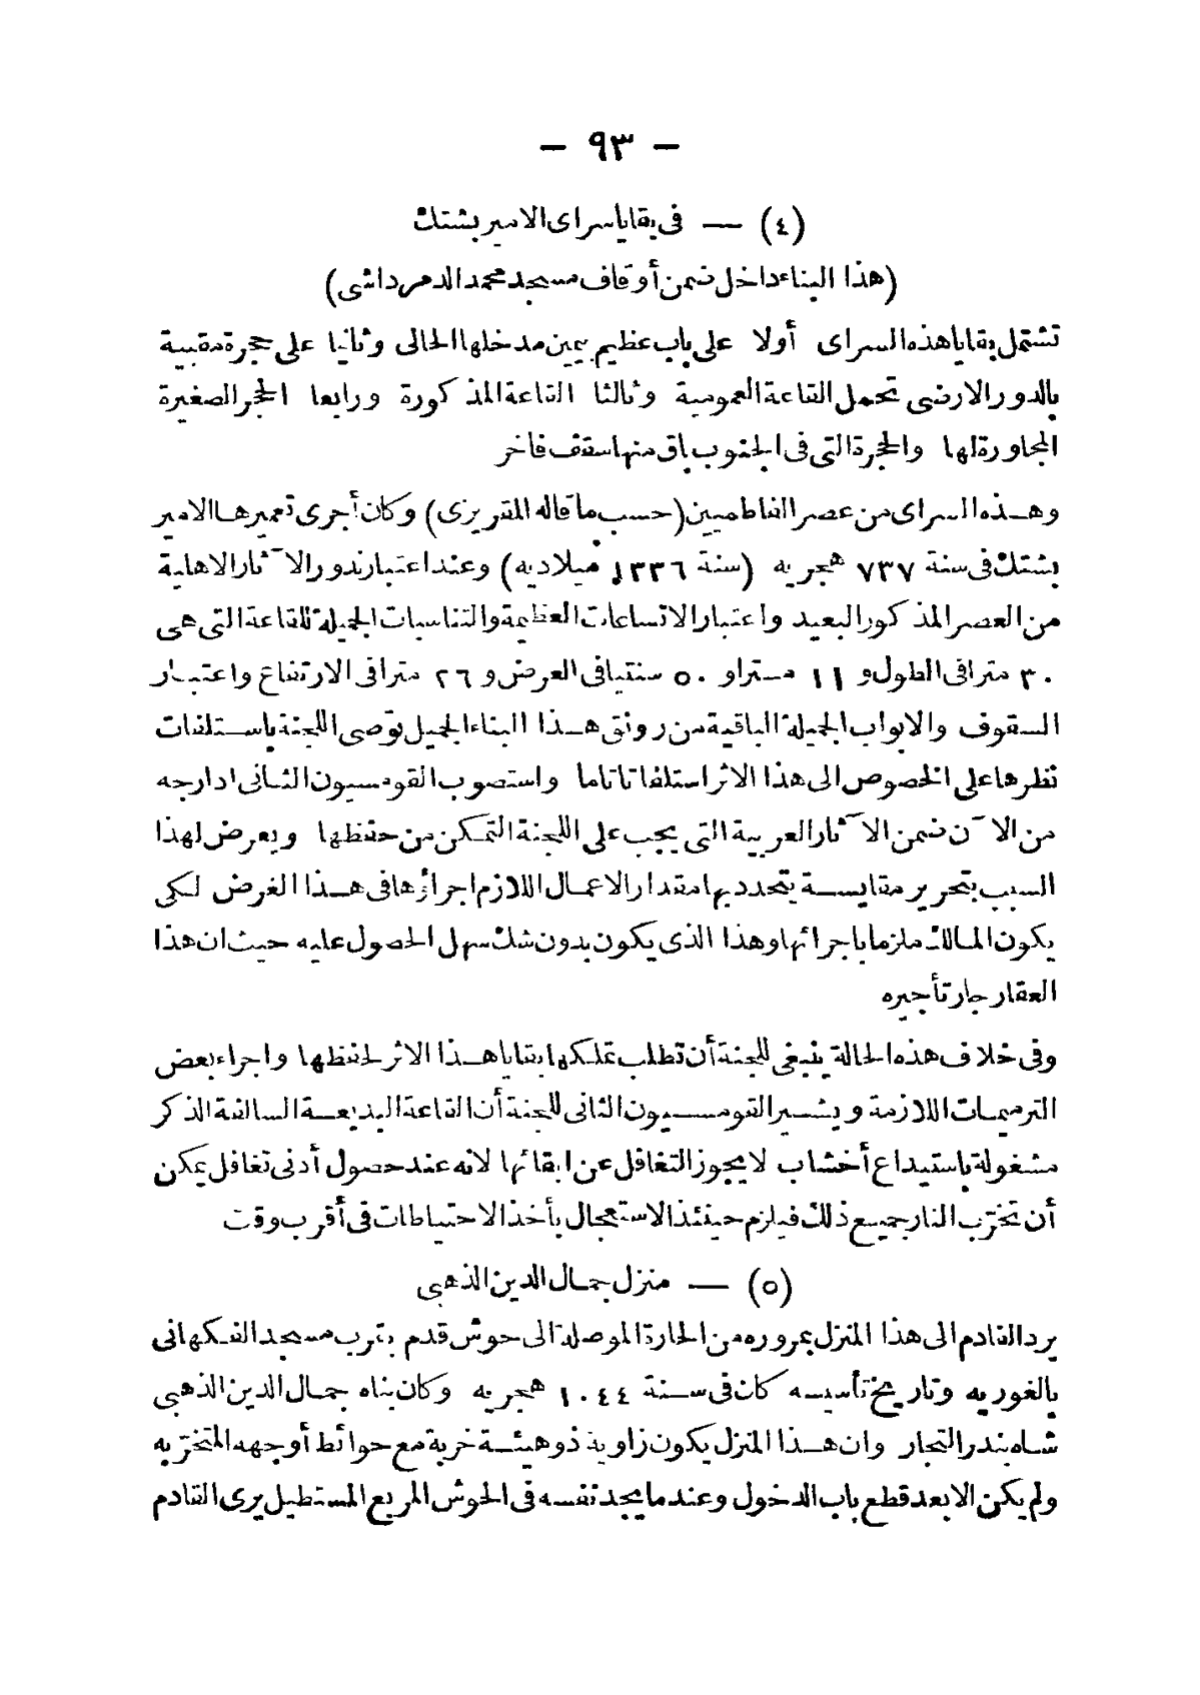 — ٩٣ —
(٤) — فى بقايا سراى الامير بشتك
(هذا البناء داخل ضمن أوقاف مسجد محمد الدمرداشى)
تشتمل بقايا هذه السراى أولا على باب عظيم بيمين مدخلها الحالى وثانيا على حجرة مقببة
بالدور الارضى تحمل القاعة العمومية وثالثا القاعة المذكورة ورابعا الحجر الصغيرة
المجاورة لها والحجرة التى فى الجنوب باق منها سقف فاخر
وهذه السراى من عصر الفاطميين (حسب ما قاله المقريزى) وكان أجرى تعميرها الامير
بشتك فى سنة ٧٣٧ هجريه (سنة ١٣٣٦ ميلاديه) وعند اعتبار ندور الآثار الاهلية
من العصر المذكور البعيد واعتبار الاتساعات العظيمة والتناسبات الجميلة للقاعة التى هى
٣٠ مترا فى الطول و ١١ مترا و ٥٠ سنتيا فى العرض و ٢٦ مترا فى الارتفاع واعتبار
السقوف والابواب الجميلة الباقية من رونق هذا البناء الجميل توصى اللجنة باستلفات
نظرها على الخصوص الى هذا الاثر استلفاتا تاما واستصوب القومسيون الثانى ادارجه
من الآن ضمن الآثار العربية التى يجب على اللجنة التمكن من حفظها ويعرض لهذا
السبب بتحرير مقايسة يتحدد بها مقدار الاعمال اللازم اجراؤها فى هذا الغرض لكى
يكون المالك ملزما باجرائها وهذا الذى يكون بدون شك سهل الحصول عليه حيث ان هذا
العقار جار تأجيره
وفى خلاف هذه الحالة ينبغى للجنة أن تطلب تملكها بقايا هذا الاثر لحفظها واجراء بعض
الترميمات اللازمة ويشير القومسيون الثانى للجنة أن القاعة البديعة السالفة الذكر
مشغولة باستيداع أخشاب لا يجوز التغافل عن ابقائها لانه عند حصول أدنى تغافل يمكن
أن تخرّب النار جميع ذلك فيلزم حينئذ الاستعجال بأخذ الاحتياطات فى أقرب وقت
(٥) — منزل جمال الدين الذهبى
يرد القادم الى هذا المنزل بمروره من الحارة الموصلة الى حوش قدم بقرب مسجد الفكهانى
بالغوريه وتاريخ تأسيسه كان فى سنة ١٠٤٤ هجريه وكان بناه جمال الدين الذهبى
شاه بندر التجار وان هذا المنزل يكون زاوية ذو هيئة خربة مع حوائط أوجهه المتخرّبه
ولم يكن الا بعد قطع باب الدخول وعندما يجد نفسه فى الحوش المربع المستطيل يرى القادم